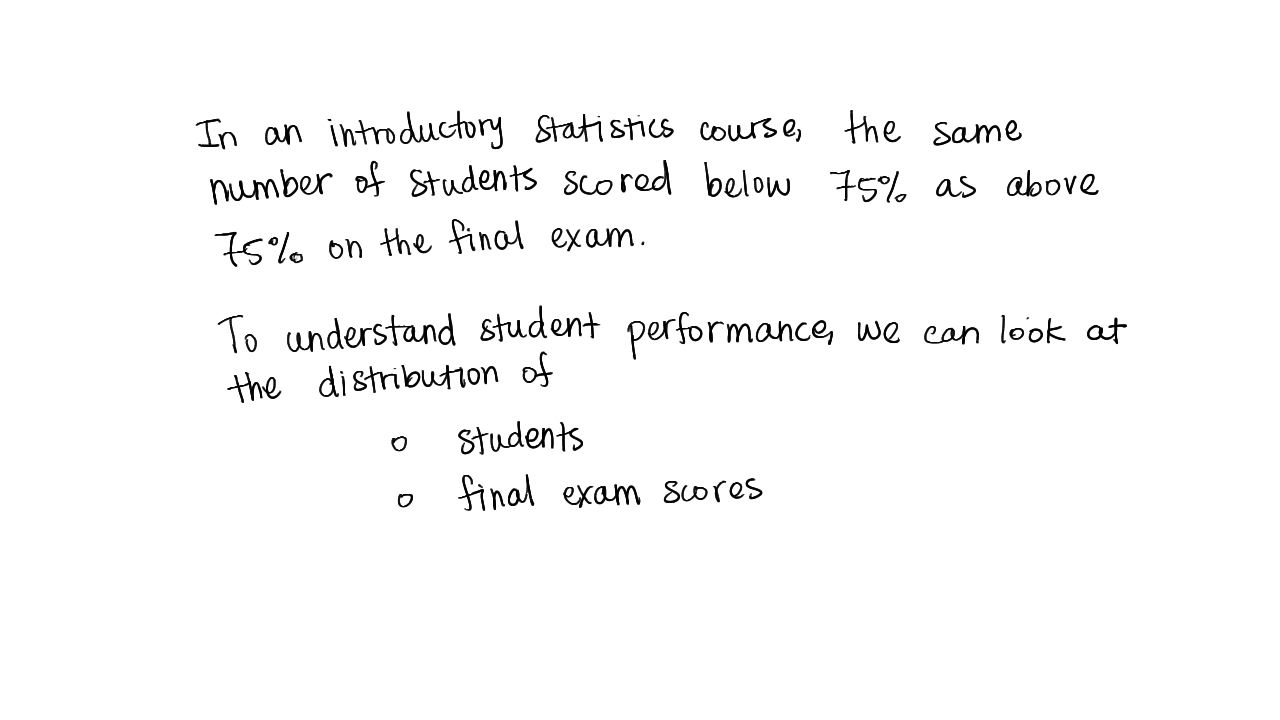 In an introductory statistics course, the same
number of students scored below 75% as above
75% on the final exam.
To understand student performance, we can look at
the distribution of
o students
o final exam scores